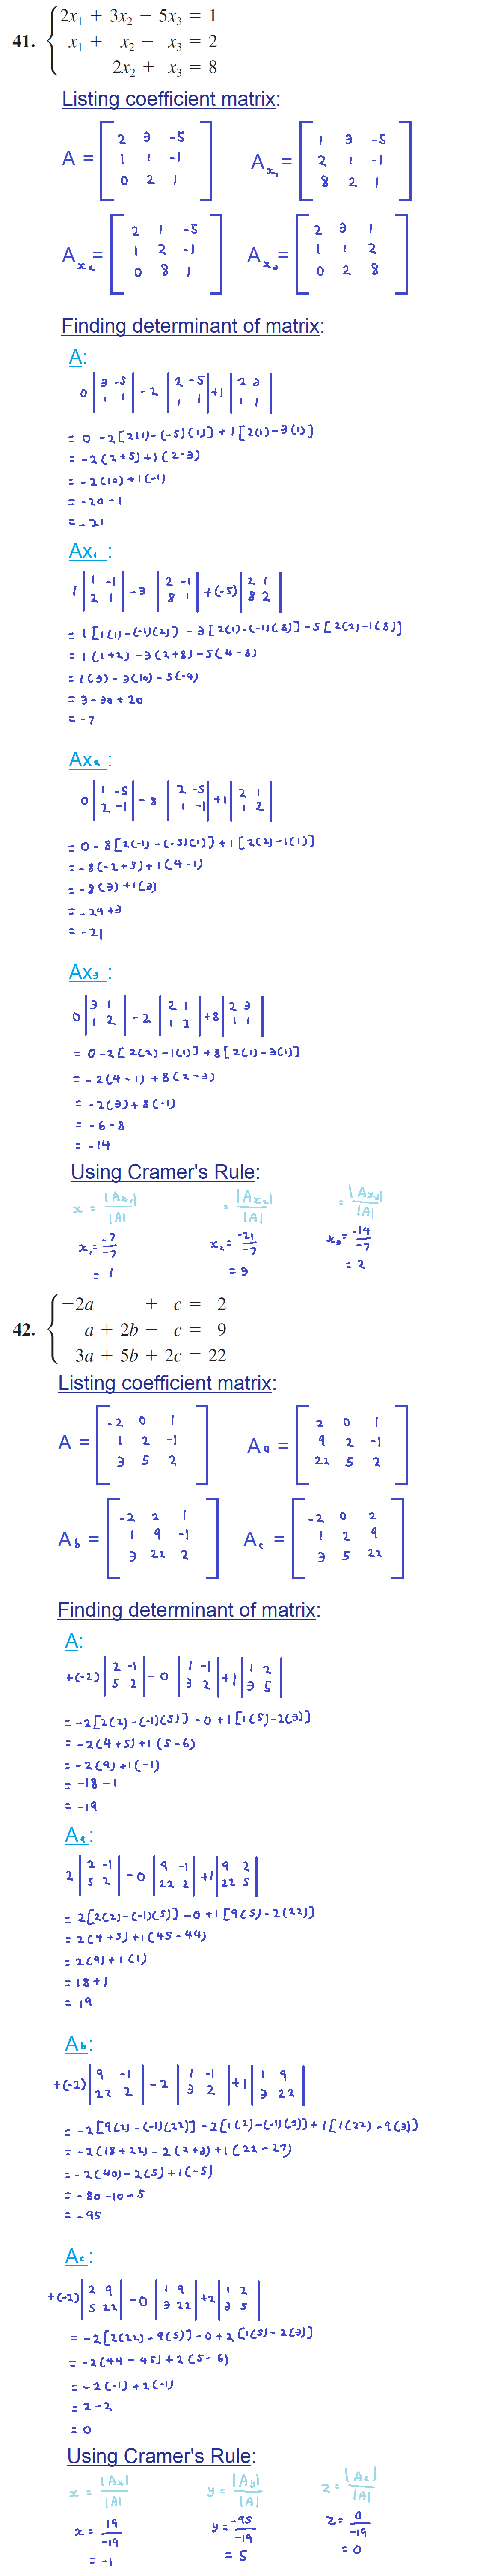 41. { 2x₁ + 3x₂ − 5x₃ = 1
x₁ + x₂ − x₃ = 2
2x₂ + x₃ = 8
Listing coefficient matrix:
A = [ 2 3 -5 ] Aₓ₁ = [ 1 3 -5 ]
1 1 -1 2 1 -1
0 2 1 8 2 1
Aₓ₂ = [ 2 1 -5 ] Aₓ₃ = [ 2 3 1 ]
1 2 -1 1 1 2
0 8 1 0 2 8
Finding determinant of matrix:
A:
0 | 3 -5 | - 2 | 2 -5 | + 1 | 2 3 |
1 1 1 1 1 1
= 0 - 2[2(1) - (-5)(1)] + 1[2(1) - 3(1)]
= -2(2+5) + 1(2-3)
= -2(10) + 1(-1)
= -20 - 1
= -21
Ax₁ :
1 | 1 -1 | - 3 | 2 -1 | + (-5) | 2 1 |
2 1 8 1 8 2
= 1[1(1) - (-1)(2)] - 3[2(1) - (-1)(8)] - 5[2(2) - 1(8)]
= 1(1+2) - 3(2+8) - 5(4-8)
= 1(3) - 3(10) - 5(-4)
= 3 - 30 + 20
= -7
Ax₂ :
0 | 1 -5 | - 8 | 2 -5 | + 1 | 2 1 |
2 -1 1 -1 1 2
= 0 - 8[2(-1) - (-5)(1)] + 1[2(2) - 1(1)]
= -8(-2+5) + 1(4-1)
= -8(3) + 1(3)
= -24+3
= -21
Ax₃ :
0 | 3 1 | - 2 | 2 1 | + 8 | 2 3 |
1 2 1 2 1 1
= 0 - 2[2(2) - 1(1)] + 8[2(1) - 3(1)]
= -2(4-1) + 8(2-3)
= -2(3) + 8(-1)
= -6 - 8
= -14
Using Cramer's Rule:
x = |Ax₁| / |A| = |Ax₂| / |A| = |Ax₃| / |A|
x₁ = -7 / -7 x₂ = -21 / -7 x₃ = -14 / -7
= 1 = 3 = 2
42. { −2a + c = 2
a + 2b − c = 9
3a + 5b + 2c = 22
Listing coefficient matrix:
A = [ -2 0 1 ] Aₐ = [ 2 0 1 ]
1 2 -1 9 2 -1
3 5 2 22 5 2
A_b = [ -2 2 1 ] A_c = [ -2 0 2 ]
1 9 -1 1 2 9
3 22 2 3 5 22
Finding determinant of matrix:
A:
+(-2) | 2 -1 | - 0 | 1 -1 | + 1 | 1 2 |
5 2 3 2 3 5
= -2[2(2) - (-1)(5)] - 0 + 1[1(5) - 2(3)]
= -2(4+5) + 1(5-6)
= -2(9) + 1(-1)
= -18 - 1
= -19
Aₐ:
2 | 2 -1 | - 0 | 9 -1 | + 1 | 9 2 |
5 2 22 2 22 5
= 2[2(2) - (-1)(5)] - 0 + 1[9(5) - 2(22)]
= 2(4+5) + 1(45-44)
= 2(9) + 1(1)
= 18 + 1
= 19
A_b:
+(-2) | 9 -1 | - 2 | 1 -1 | + 1 | 1 9 |
22 2 3 2 3 22
= -2[9(2) - (-1)(22)] - 2[1(2) - (-1)(3)] + 1[1(22) - 9(3)]
= -2(18+22) - 2(2+3) + 1(22-27)
= -2(40) - 2(5) + 1(-5)
= -80 - 10 - 5
= -95
A_c:
+(-2) | 2 9 | - 0 | 1 9 | + 2 | 1 2 |
5 22 3 22 3 5
= -2[2(22) - 9(5)] - 0 + 2[1(5) - 2(3)]
= -2(44-45) + 2(5-6)
= -2(-1) + 2(-1)
= 2 - 2
= 0
Using Cramer's Rule:
x = |Ax| / |A| y = |Ay| / |A| z = |Az| / |A|
x = 19 / -19 y = -95 / -19 z = 0 / -19
= -1 = 5 = 0